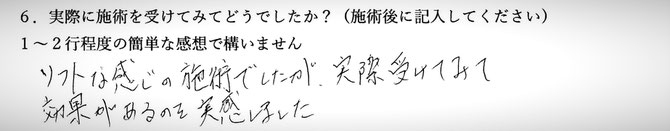 6．実際に施術を受けてみてどうでしたか？（施術後に記入してください）
1～2行程度の簡単な感想で構いません
ソフトな感じの施術でしたが、実際受けてみて
効果があるのを実感しました